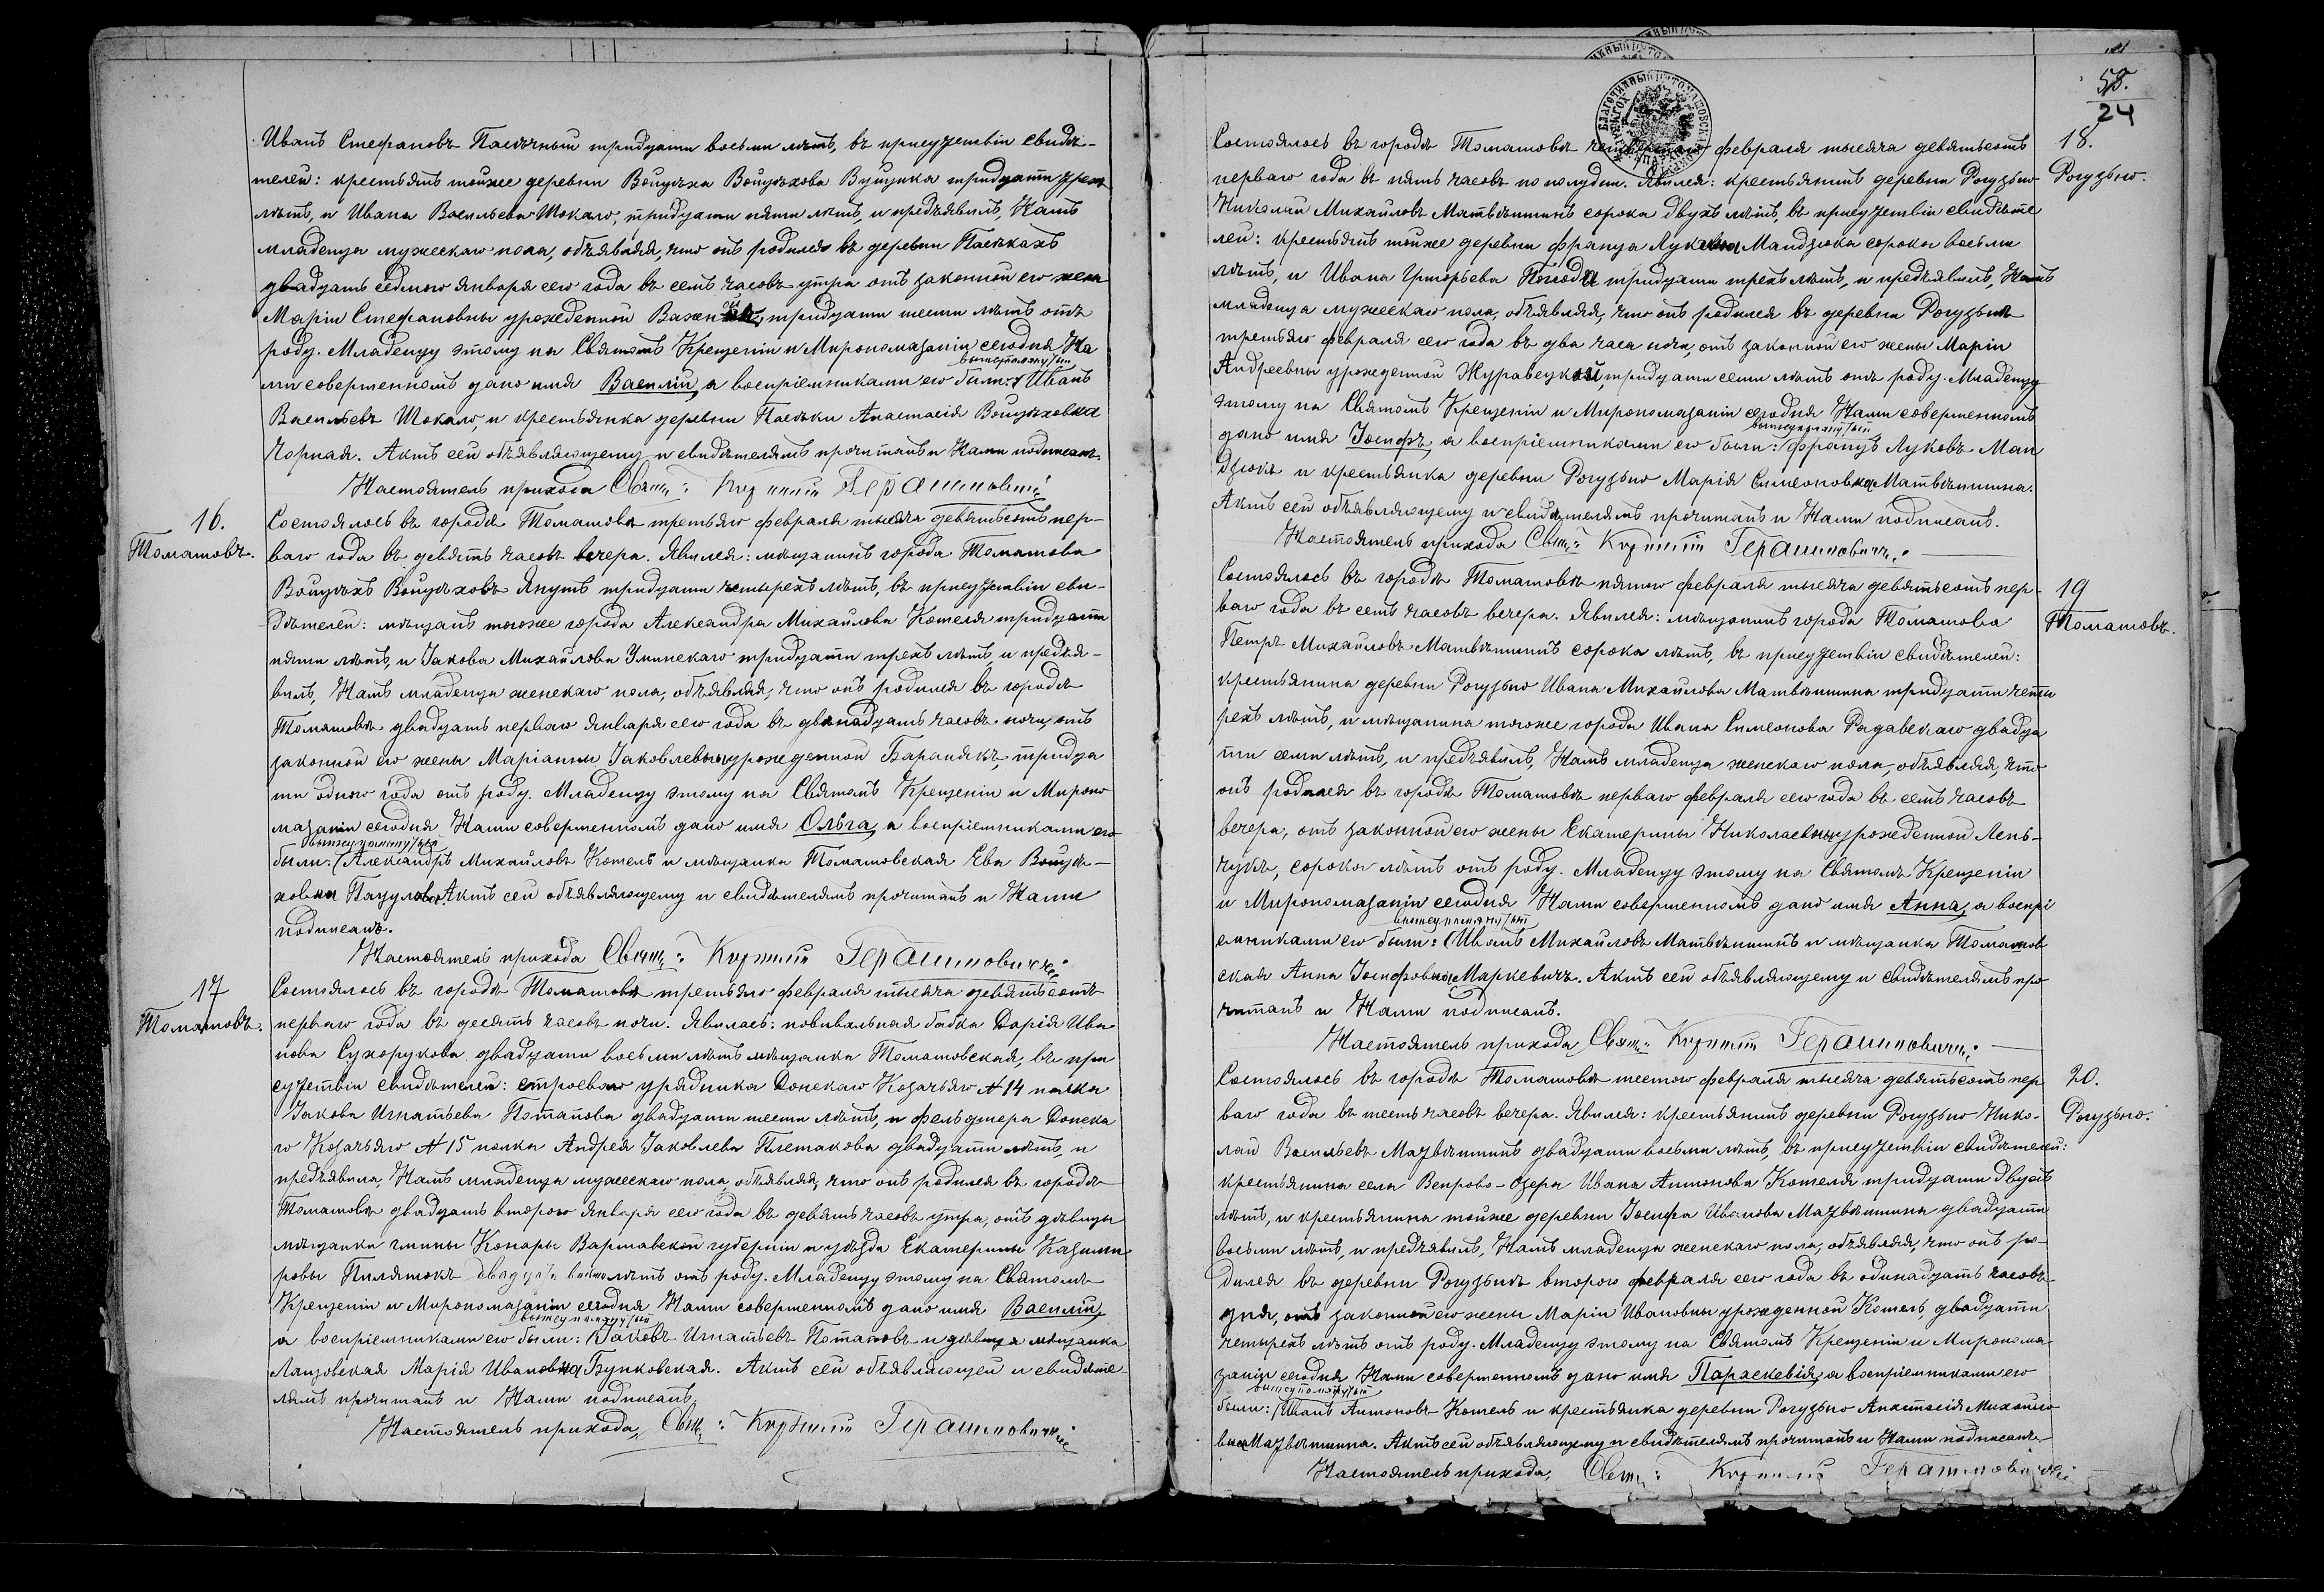 Иванъ Стефановъ Пасѣчный тридцати восьми лѣтъ, въ присутствіи свидѣ-
телей: крестьянъ тойже деревни Войцѣха Войцѣхова Вуцика тридцати трехъ
лѣтъ, и Ивана Васильева Шокало, тридцати пяти лѣтъ, и предъявилъ, Намъ
младенца мужескаго пола, объявляя, что онъ родился въ деревни Пасѣкахъ
двадцать седмого января сего года въ семь часовъ утра отъ законной его жены
Маріи Стефановны урожденной тридцати шести лѣтъ отъ
роду. Младенцу этому на Святомъ Крещеніи и Миропомазаніи сегодня На
вышеупомянутый
ми совершенномъ дано имя Василій, а воспріемниками его были: Иванъ
Васильевъ Шокало, и крестьянка деревни Пасѣки Анастасія Войцѣховна
Чорная. Актъ сей объявляющему и свидѣтелямъ прочитанъ и Нами подписанъ.
Настоятель прихода Свящ: Герашиновичъ
16.
Томашовъ.
Состоялось въ городѣ Томашовѣ третьяго февраля тысяча девятьсотъ пер-
ваго года въ девять часовъ вечера. Явился: мѣщанинъ города Томашова
Войцѣхъ Войцѣховъ Якутъ тридцати четырехъ лѣтъ, въ присутствіи сви-
дѣтелей: мѣщанъ тогоже города Александра Михайлова Котеля тридцати
пяти лѣтъ, и Іакова Михайлова Уминскаго тридцати трехъ лѣтъ, и предъя-
вилъ, Намъ младенца женскаго пола, объявляя, что онъ родился въ городѣ
Томашовѣ двадцать перваго января сего года въ двѣнадцать часовъ ночи, отъ
законной его жены Маріанны Іаковлевны урожденной Баранякъ, тридца
ти одного года отъ роду. Младенцу этому на Святомъ Крещеніи и Миропо
мазаніи сегодня Нами совершенномъ дано имя Ольга, а воспріемниками его
вышеупомянутый
были: Александръ Михайловъ Котель и мѣщанка Томашовская Ева Войцѣ-
ховна Актъ сей объявляющему и свидѣтелямъ прочитанъ и Нами
подписанъ.
Настоятель прихода Свящ: Герашиновичъ
17
Томашовъ.
Состоялось въ городѣ Томашовѣ третьяго февраля тысяча девятьсотъ
перваго года въ десять часовъ ночи. Явилась: повивальная бабка Дарія Ива
нова Сухорукова двадцати восьми лѣтъ мѣщанка Томашовская, въ при
сутствіи свидѣтелей: строеваго урядника Донскаго Козачьяго №14 полка
Іакова Игнатьева Потапова двадцати шести лѣтъ, и фельдшера Донска
го Козачьяго №15 полка Андрея Іаковлева Плетакова двадцати лѣтъ, и
предъявила, Намъ младенца мужескаго пола, объявляя, что онъ родился въ городѣ
Томашовѣ двадцать второго января сего года въ девять часовъ утра, отъ дѣвицы
мѣщанки гмины Конары Варшавской губерніи и уѣзда Екатерины Казими
ровы Пилятокъ двадцати лѣтъ отъ роду. Младенцу этому на Святомъ
Крещеніи и Миропомазаніи сегодня Нами совершенномъ дано имя Василій,
вышеупомянутый
а воспріемниками его были: Іаковъ Игнатьевъ Потаповъ и дѣвица мѣщанка
Марія Ивановна Бунковская. Актъ сей объявляющей и свидѣте-
лямъ прочитанъ и Нами подписанъ.
Настоятель прихода, Свящ: Герашиновичъ
58.
24
18.
Рогузьно.
Состоялось въ городѣ Томашовѣ четвертаго февраля тысяча девятьсотъ
перваго года въ пять часовъ по полудни. Явился: крестьянинъ деревни Рогузьно
Николай Михайловъ Матвѣишинъ сорока двухъ лѣтъ, въ присутствіи свидѣте
лей: крестьянъ тойже деревни Франца Мандзюка сорока восьми
лѣтъ, и Ивана Григорьева тридцати трехъ лѣтъ, и предъявилъ, Намъ
младенца мужескаго пола, объявляя, что онъ родился въ деревни Рогузьнѣ
третьяго февраля сего года въ два часа ночи, отъ законной его жены Маріи
Андреевны урожденной Журавецкой, тридцати семи лѣтъ отъ роду. Младенцу
этому на Святомъ Крещеніи и Миропомазаніи сегодня Нами совершенномъ
вышеупомянутый
дано имя Іосифъ, а воспріемниками его были: Францъ Луковъ Ман
дзюкъ и крестьянка деревни Рогузьно Марія Симеоновна Матвѣишина.
Актъ сей объявляющему и свидѣтелямъ прочитанъ и Нами подписанъ.
Настоятель прихода Свящ: Герашиновичъ
19
Томашовъ.
Состоялось въ городѣ Томашовѣ пятого февраля тысяча девятьсотъ пер-
ваго года въ семь часовъ вечера. Явился: мѣщанинъ города Томашова
Петръ Михайловъ Матвѣишинъ сорока лѣтъ, въ присутствіи свидѣтелей:
крестьянина деревни Рогузьно Ивана Михайлова Матвѣишина тридцати четы
рехъ лѣтъ, и мѣщанина тогоже города Ивана Симеонова Радавскаго двадца
ти семи лѣтъ, и предъявилъ, Намъ младенца женскаго пола, объявляя, что
онъ родился въ городѣ Томашовѣ перваго февраля сего года въ семь часовъ
вечера, отъ законной его жены Екатерины Николаевны урожденной Лень-
чукъ, сорока лѣтъ отъ роду. Младенцу этому на Святомъ Крещеніи
и Миропомазаніи сегодня Нами совершенномъ дано имя Анна, а воспрі
вышеупомянутый
емниками его были: Иванъ Михайловъ Матвѣишинъ и мѣщанка Томашов
ская Анна Іосифовна Маркевичъ. Актъ сей объявляющему и свидѣтелямъ про
читанъ и Нами подписанъ.
Настоятель прихода Свящ: Герашиновичъ
20.
Рогузьно.
Состоялось въ городѣ Томашовѣ шестого февраля тысяча девятьсотъ пер
ваго года въ шесть часовъ вечера. Явился: крестьянинъ деревни Рогузьно Нико-
лай Васильевъ Мацвѣишинъ двадцати восьми лѣтъ, въ присутствіи свидѣтелей:
крестьянина села Вепрово-Озера Ивана Антонова Котеля тридцати двухъ
лѣтъ, и крестьянина тойже деревни Іосифа Иванова Мацвѣишина двадцати
восьми лѣтъ, и предъявилъ, Намъ младенца женскаго пола, объявляя, что онъ ро-
дился въ деревни Рогузьнѣ второго февраля сего года въ одинадцать часовъ
дня, отъ законной его жены Маріи Ивановны урожденной Котель, двадцати
четырехъ лѣтъ отъ роду. Младенцу этому на Святомъ Крещеніи и Миропома-
заніи сегодня Нами совершенномъ дано имя Параскевія, а воспріемниками его
вышеупомянутый
были: Иванъ Антоновъ Котель и крестьянка деревни Рогузьно Анастасія Михайло
вна Мацвѣишина. Актъ сей объявляющему и свидѣтелямъ прочитанъ и Нами подписанъ
Настоятель прихода, Свящ: Герашиновичъ